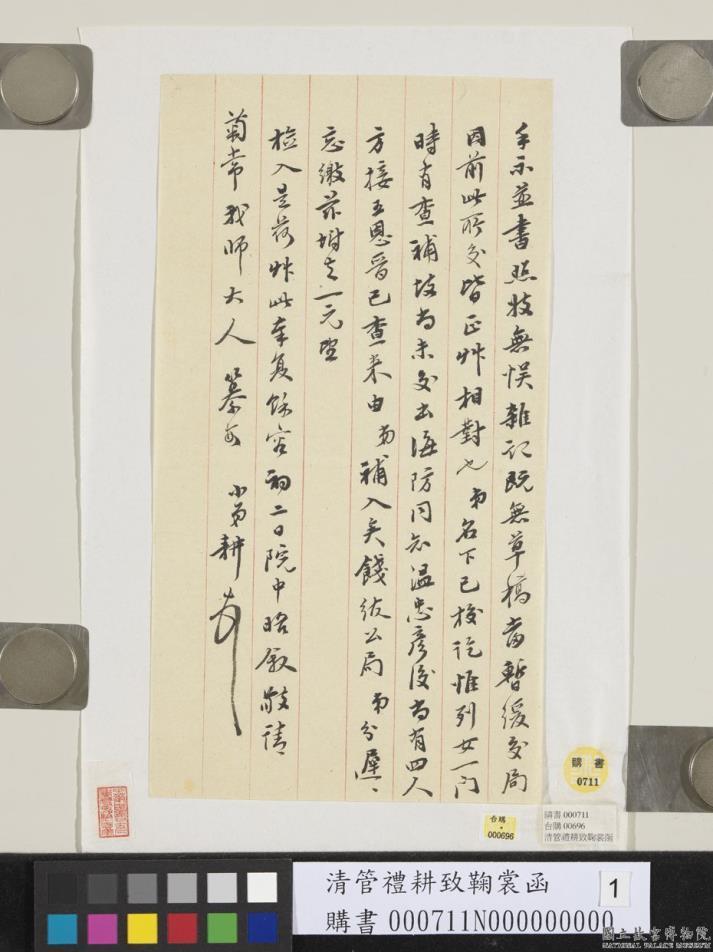 手示並書照收無悞雜記既無草稿當暫緩交局
因前此所交皆正艸相對也弟名下已校訖惟列女一門
時有查補故尚未交出海防同知溫忠彥後尚有四人
方接王恩晉已查來由弟補入矣餞紱公局弟分遲遲
忘繳茲坿去一元望
檢入是荷艸此奉复餘容初二日院中晤敘敬請
菊常我師大人 纂安 小弟耕頓
購書
0711
台購
000696
購書 000711
台購 00696
清管禮耕致鞠裳函
清管禮耕致鞠裳函
購書 000711N000000000
1
國立故宮博物院
NATIONAL PALACE MUSEUM